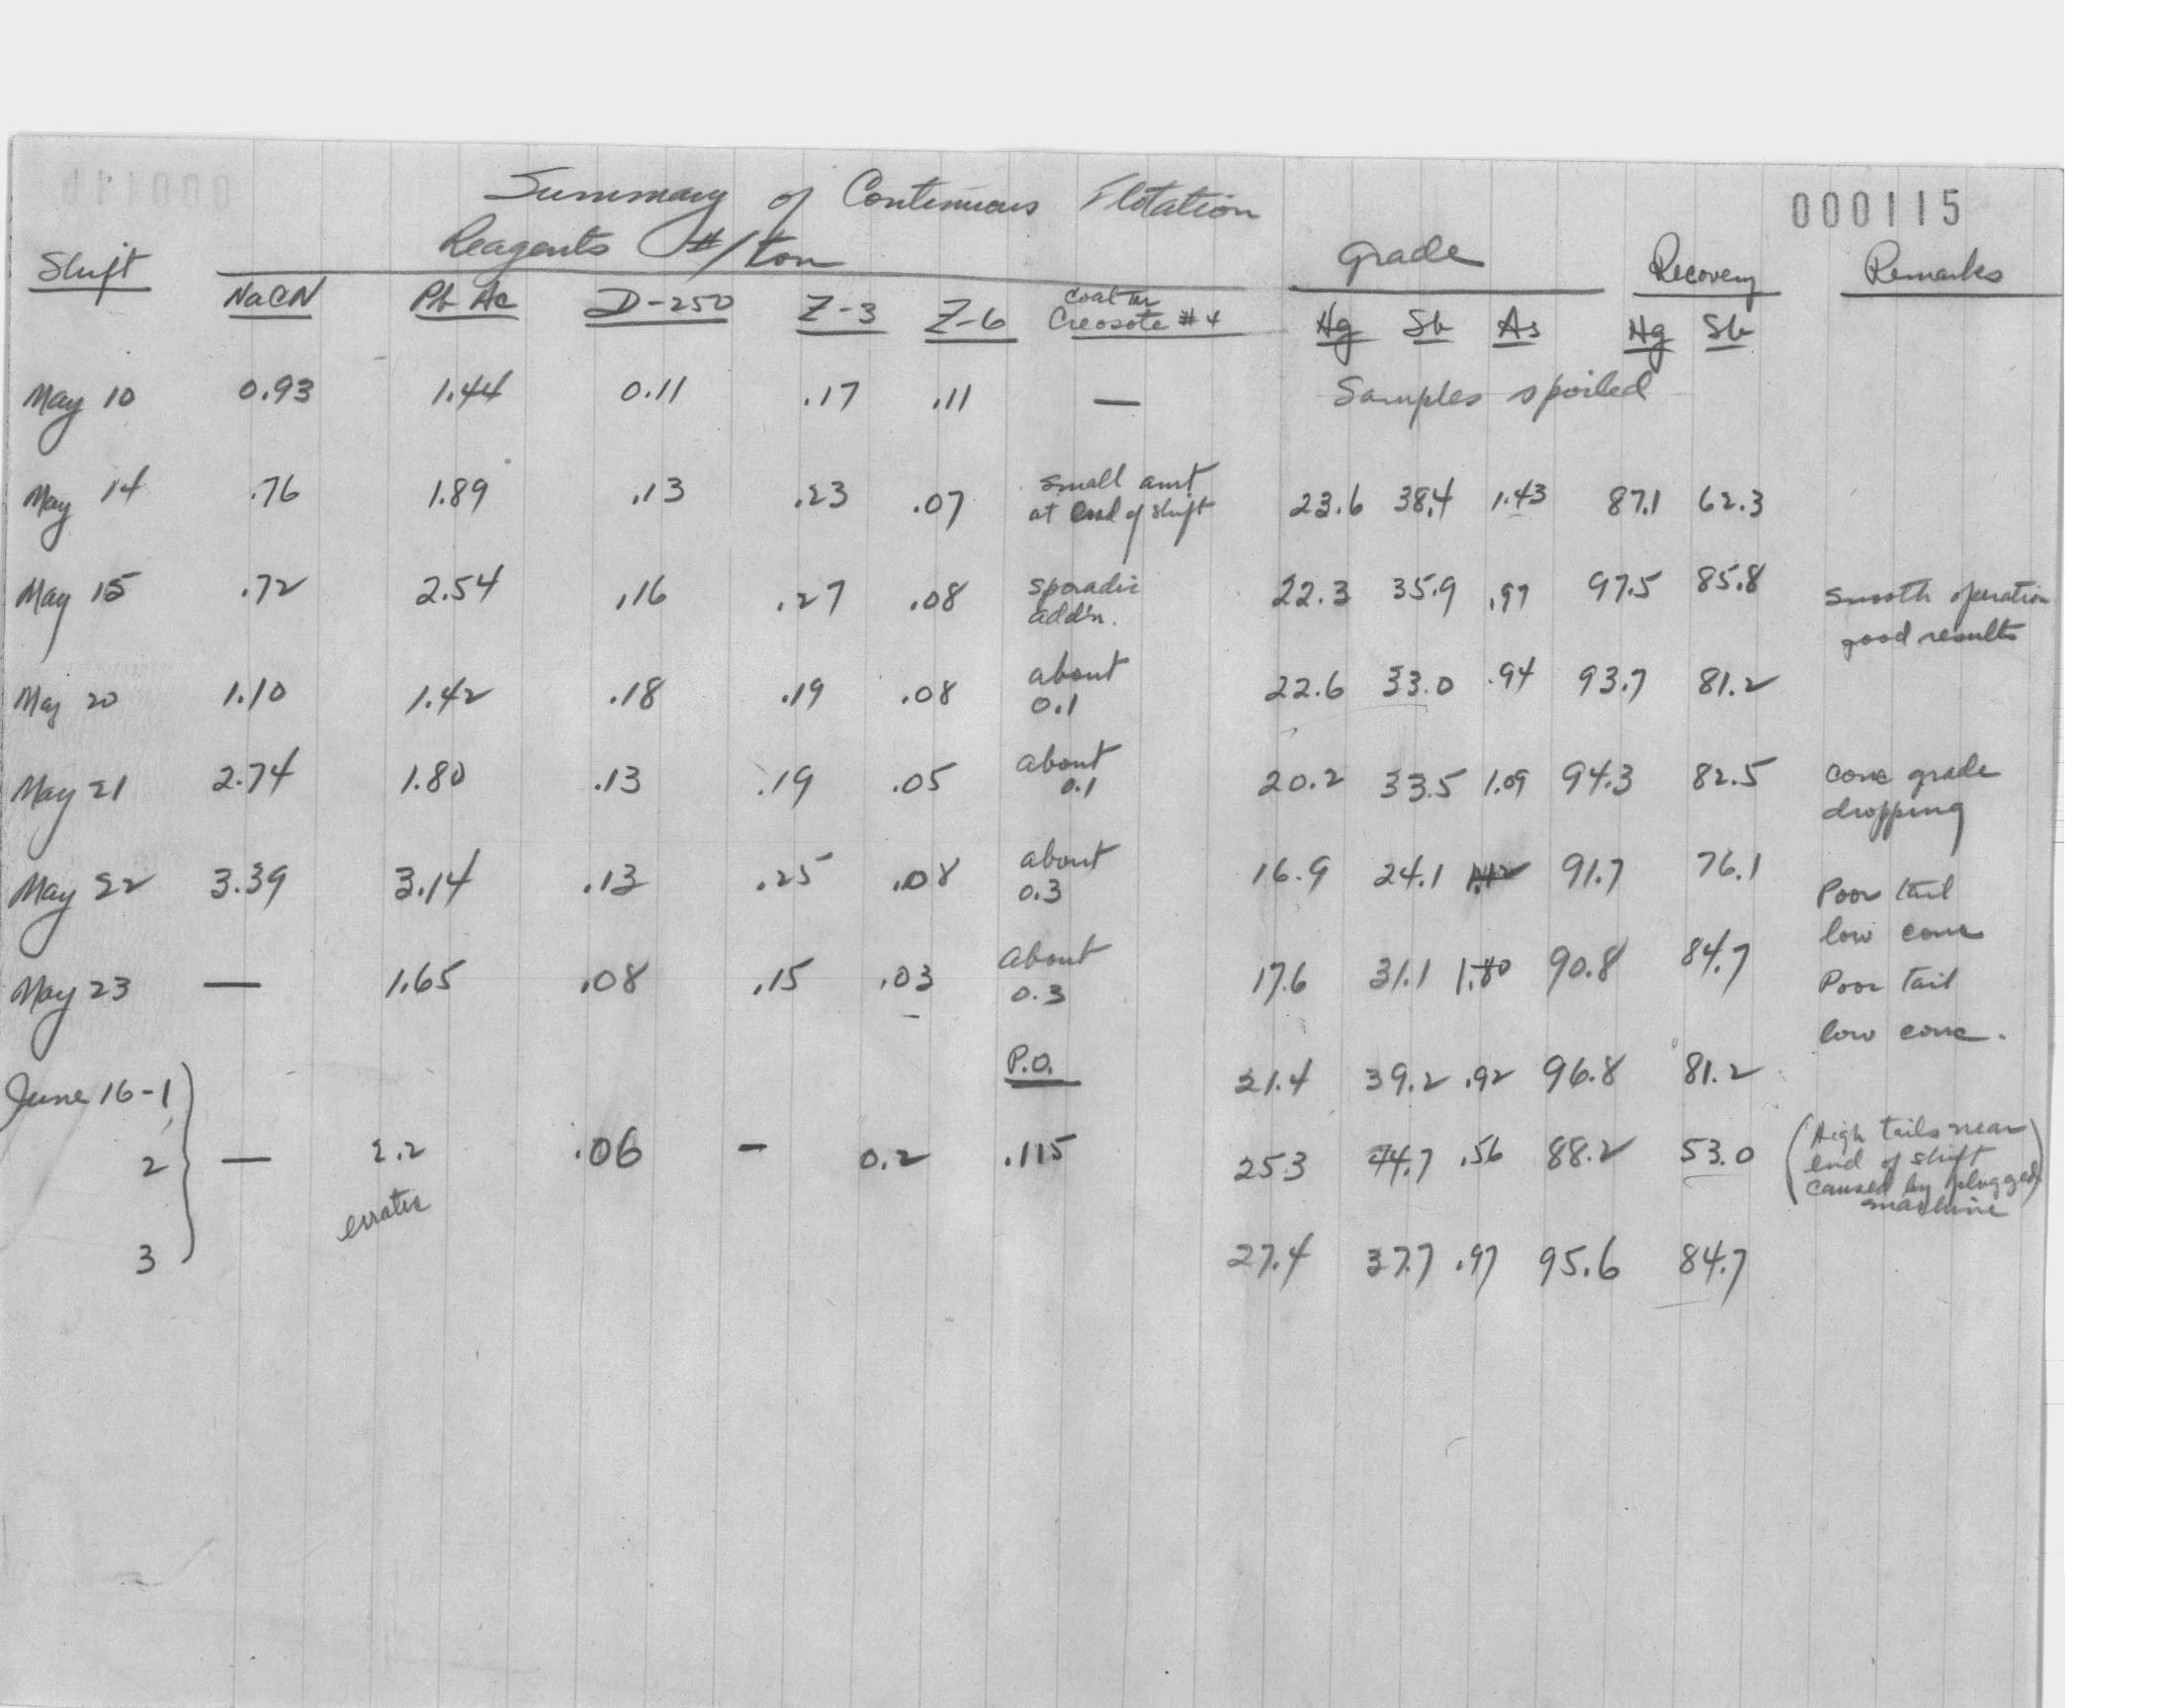 000115
Summary of Continuous Flotation
Shift Reagents #/ton Grade Recovery Remarks
NaCN Pb Ac D-250 Z-3 Z-6 Coal Tar Creosote #4 Hg Sb As Hg Sb
May 10 0.93 1.44 0.11 .17 .11 — Samples spoiled
May 14 .76 1.89 .13 .23 .07 small amt at end of shift 23.6 38.4 1.43 87.1 62.3
May 15 .72 2.54 .16 .27 .08 sporadic add'n. 22.3 35.9 .97 97.5 85.8 Smooth operation good results
May 20 1.10 1.42 .18 .19 .08 about 0.1 22.6 33.0 .94 93.7 81.2
May 21 2.74 1.80 .13 .19 .05 about 0.1 20.2 33.5 1.09 94.3 82.5 conc grade dropping
May 22 3.39 3.14 .13 .25 .08 about 0.3 16.9 24.1 91.7 76.1 Poor tail low conc
May 23 — 1.65 .08 .15 .03 about 0.3 17.6 31.1 1.80 90.8 84.7 Poor tail low conc.
P.O.
June 16-1 21.4 39.2 .92 96.8 81.2
2 — 2.2 .06 - 0.2 .115 25.3 44.7 .56 88.2 53.0 (High tails near end of shift caused by plugged machine)
erratic
3 27.4 37.7 .97 95.6 84.7